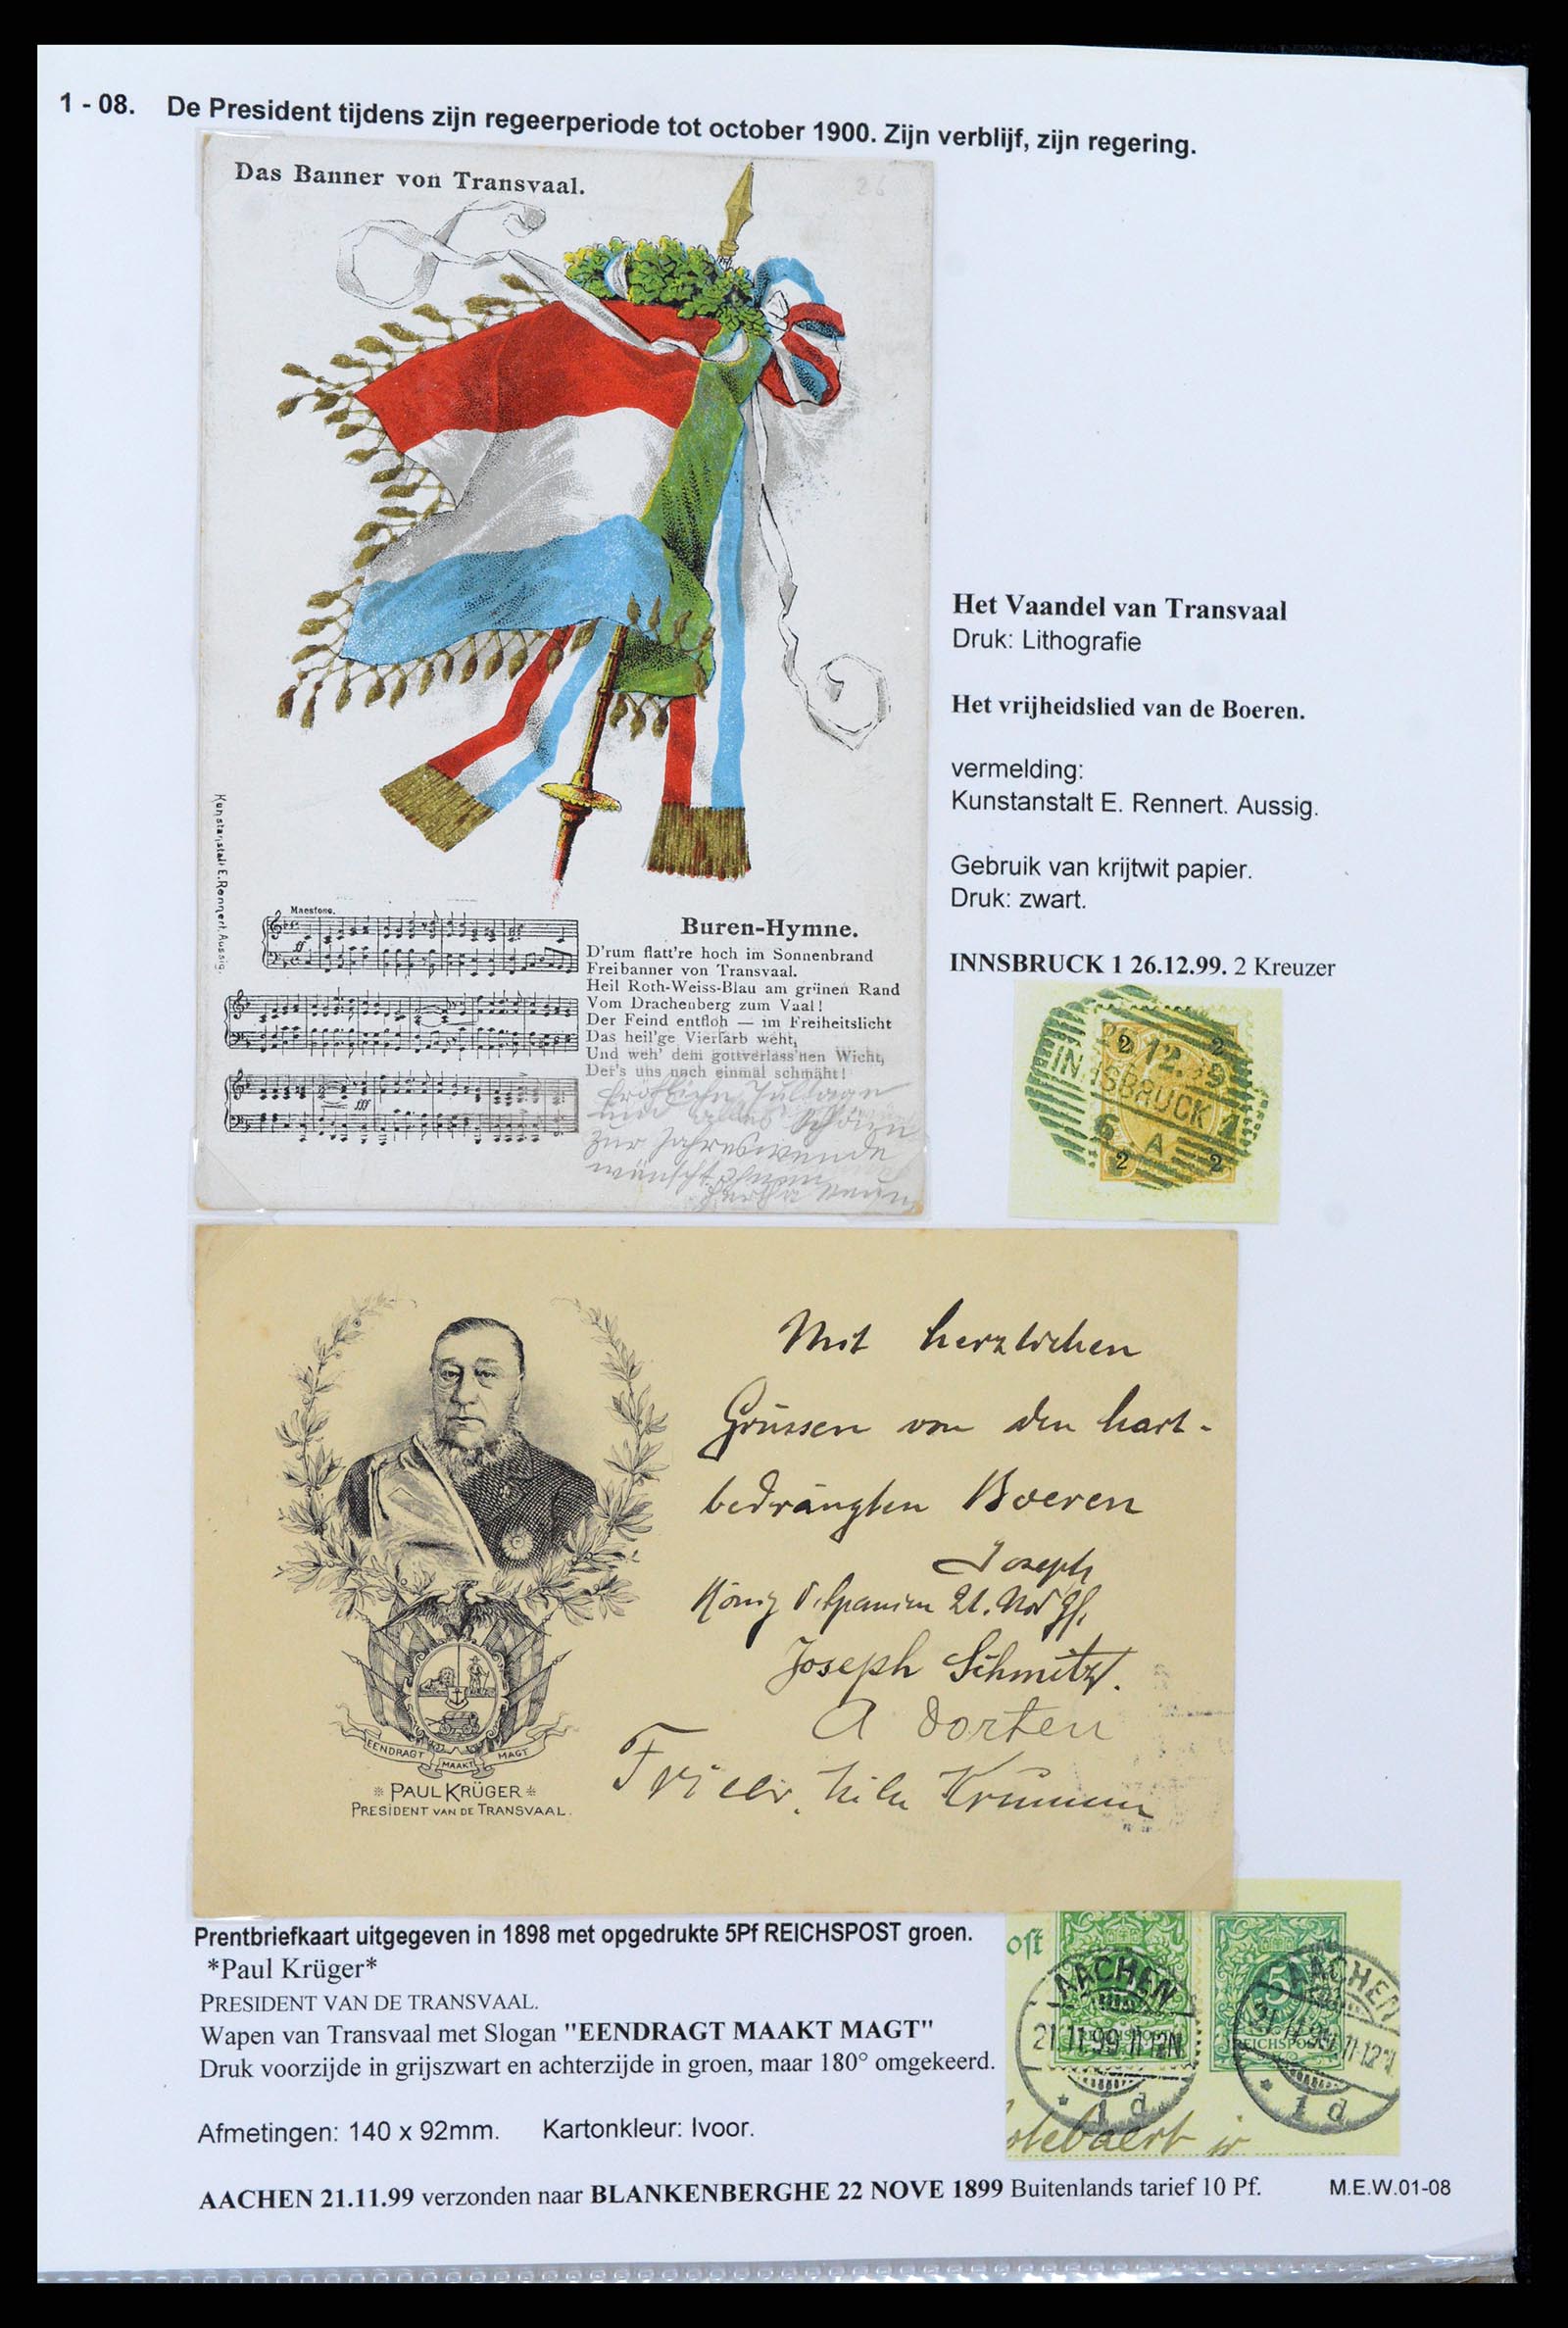 1 - 08. De President tijdens zijn regeerperiode tot october 1900. Zijn verblijf, zijn regering.
Das Banner von Transvaal.
26
Het Vaandel van Transvaal
Druk: Lithografie
Het vrijheidslied van de Boeren.
vermelding:
Kunstanstalt E. Rennert. Aussig.
Gebruik van krijtwit papier.
Druk: zwart.
INNSBRUCK 1 26.12.99. 2 Kreuzer
2 2
26 12.99
INNSBRUCK 1
6 A
2 2
Kunstanstalt E. Rennert. Aussig.
Maestoso.
ff
fff
Buren-Hymne.
D'rum flatt're hoch im Sonnenbrand
Freibanner von Transvaal.
Heil Roth-Weiss-Blau am grünen Rand
Vom Drachenberg zum Vaal!
Der Feind entfloh — im Freiheitslicht
Das heil'ge Vierfarb weht,
Und weh' dem gottverlass'nen Wicht,
Der's uns noch einmal schmäht!
Fröhliche Jultage
und alles Schöne
zur Jahreswende
wünscht Ihnen
Mit herzlichen
Grüssen von den hart-
bedrängten Boeren
Joseph
König v. Spanien 21. Nov 99.
Joseph Schmitz.
A Dorten
EENDRAGT MAAKT MAGT
* PAUL KRÜGER *
PRESIDENT VAN DE TRANSVAAL.
Prentbriefkaart uitgegeven in 1898 met opgedrukte 5Pf REICHSPOST groen.
*Paul Krüger*
PRESIDENT VAN DE TRANSVAAL.
Wapen van Transvaal met Slogan "EENDRAGT MAAKT MAGT"
Druk voorzijde in grijszwart en achterzijde in groen, maar 180° omgekeerd.
Afmetingen: 140 x 92mm. Kartonkleur: Ivoor.
AACHEN 21.11.99 verzonden naar BLANKENBERGHE 22 NOVE 1899 Buitenlands tarief 10 Pf. M.E.W.01-08
ost
AACHEN
21.11.99.11-12N.
* 1 d
5
AACHEN
REICHSPOST
21.11.99.11-12N
* 1 d